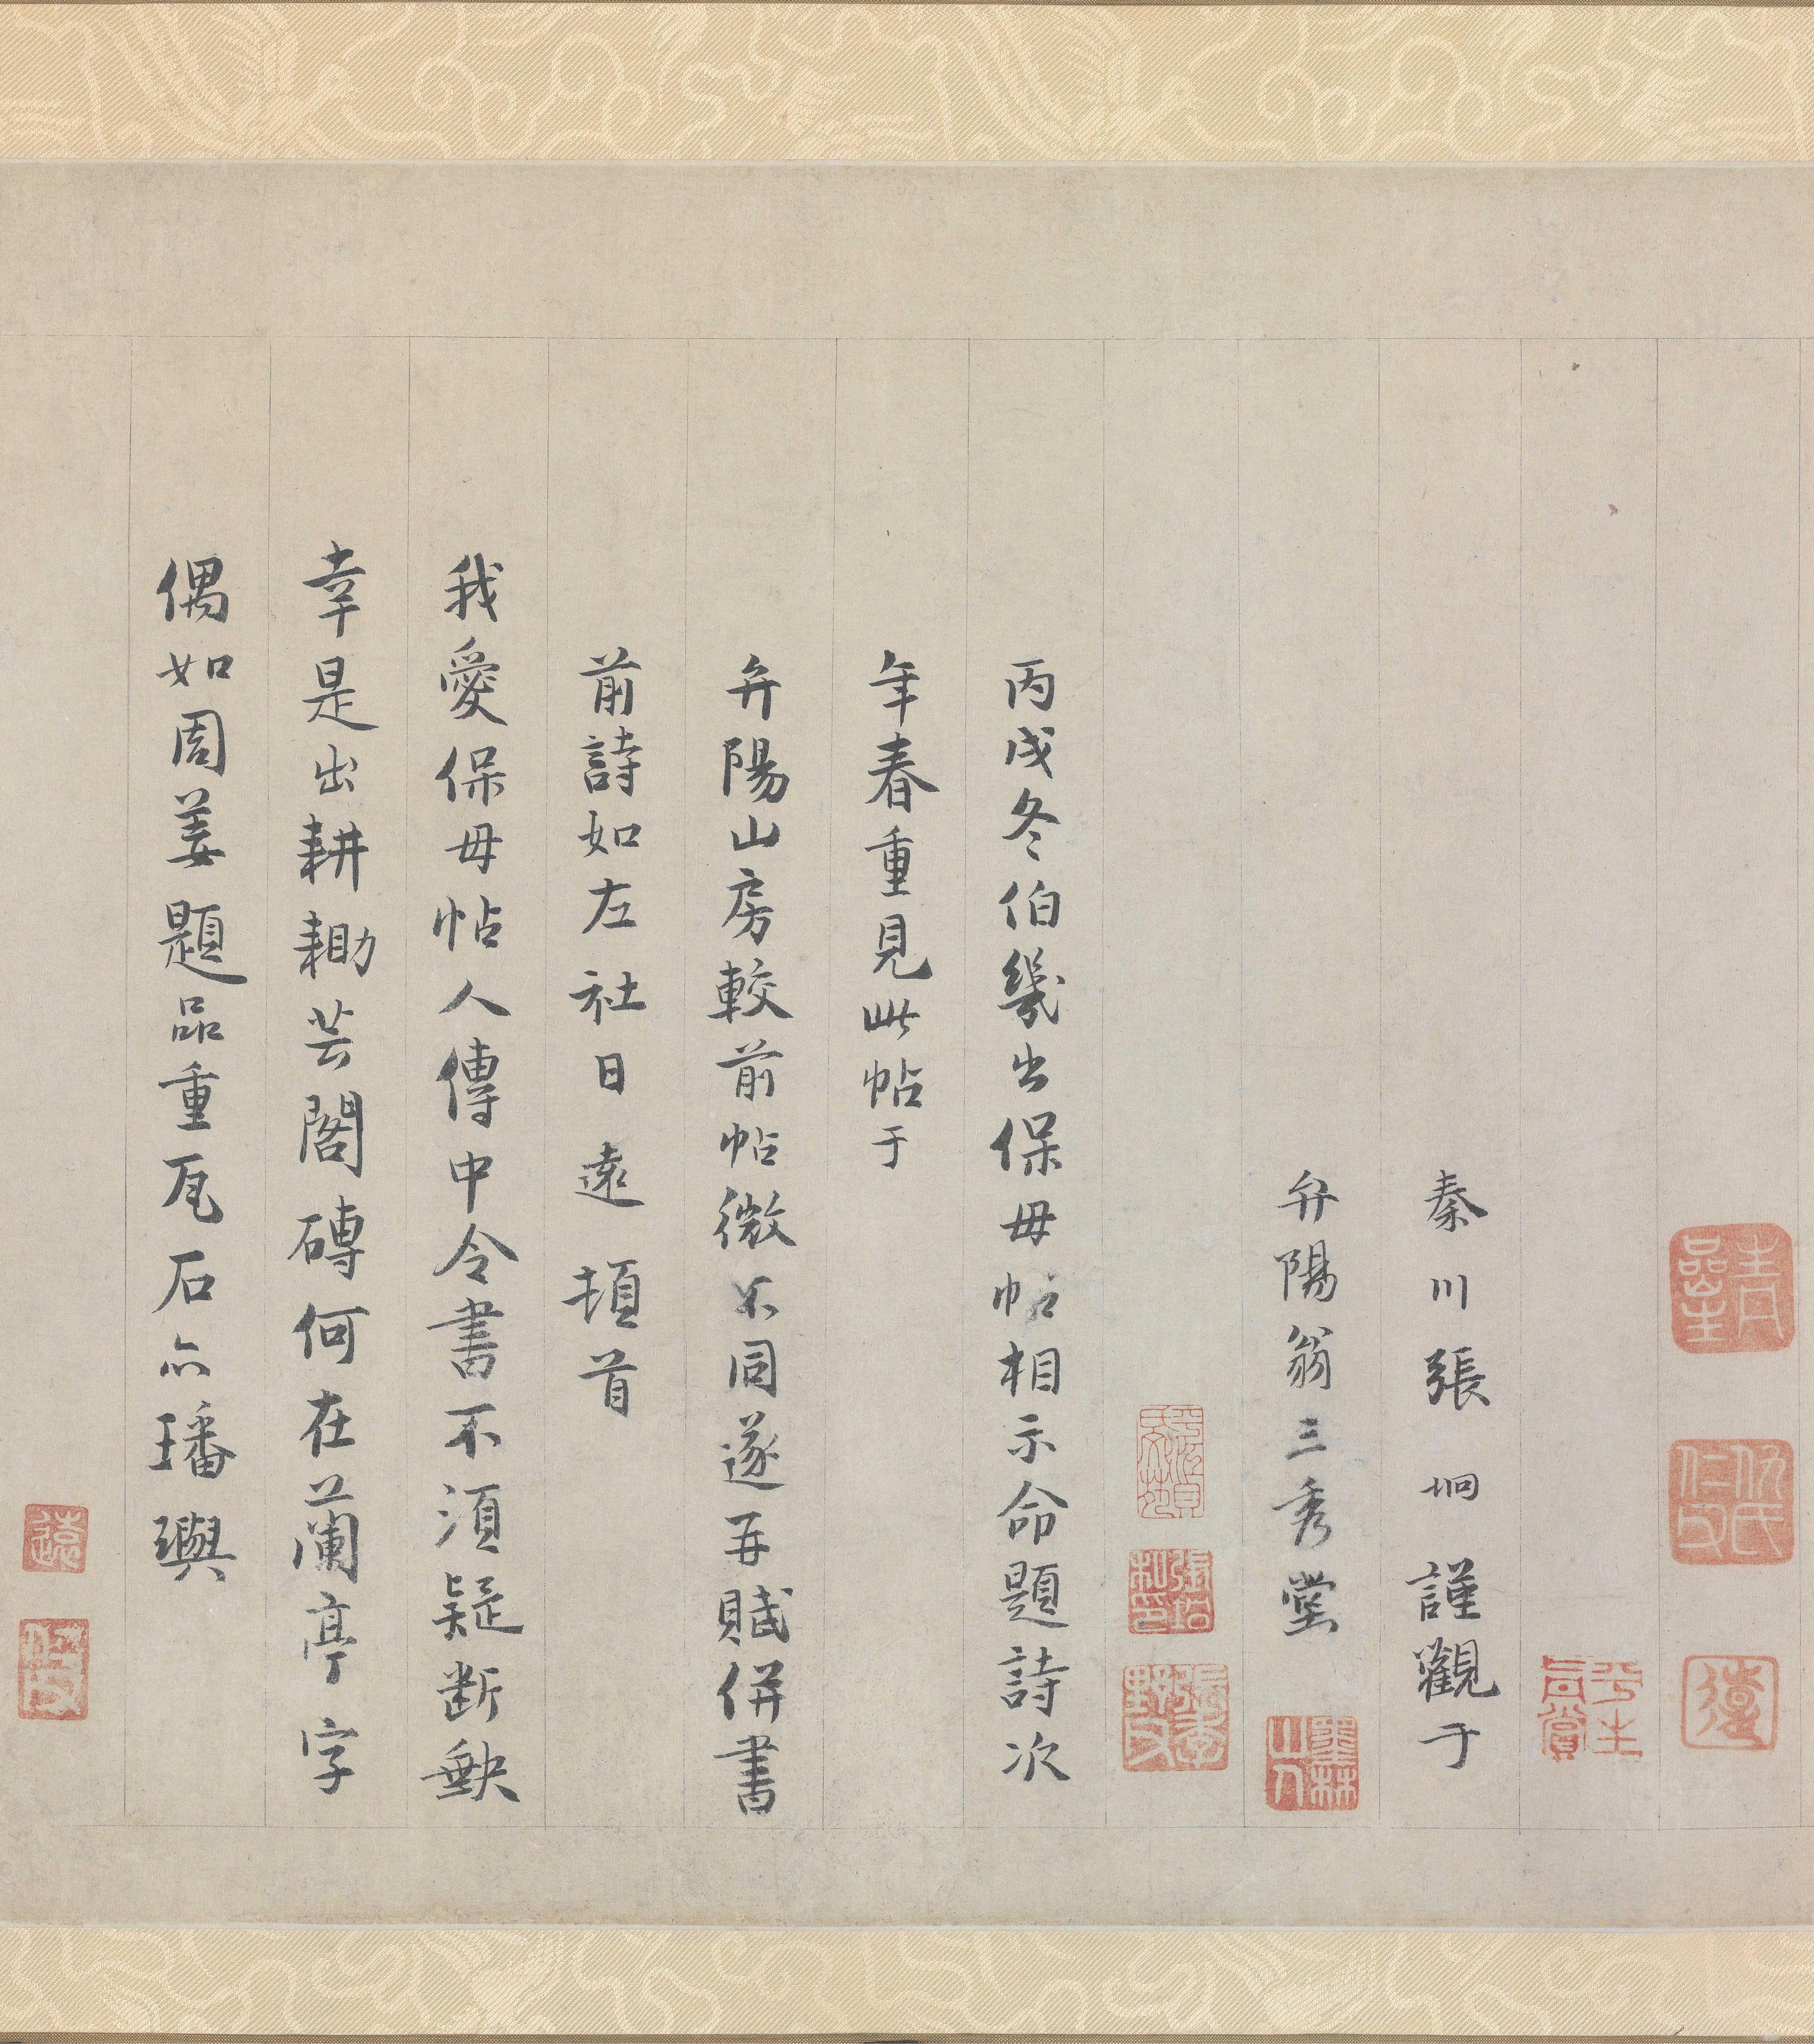 秦川張坰謹觀于
弁陽翁三秀堂
丙戌冬伯幾出保母帖相示命題詩次
年春重見此帖于
弁陽山房較前帖微不同遂再賦併書
前詩如左社日遠頓首
我愛保母帖人傳中令書不須疑斷缺
幸是出耕耡芸閣磚何在蘭亭字
偶如周姜題品重瓦石亦璠璵
仇氏仁父
平生真賞
墨林山人
遠